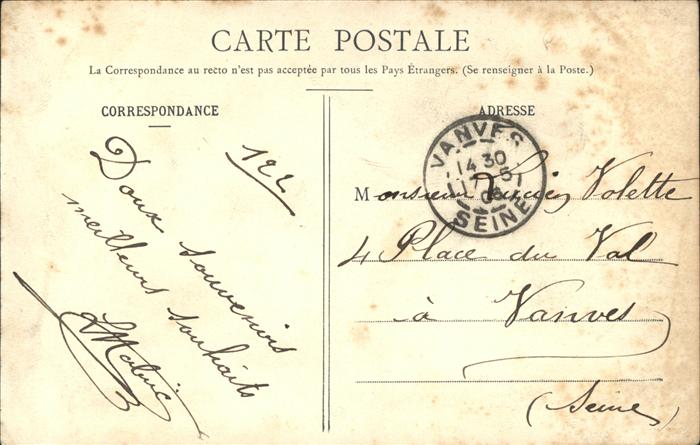 CARTE POSTALE
La Correspondance au recto n'est pas acceptée par tous les Pays Étrangers. (Se renseigner à la Poste.)
CORRESPONDANCE
122
Doux souvenirs
meilleurs souhaits
ADRESSE
VANVES
14 30
17 5
SEINE
Monsieur Lucien Volette
4 Place du Val
à Vanves
(Seine)